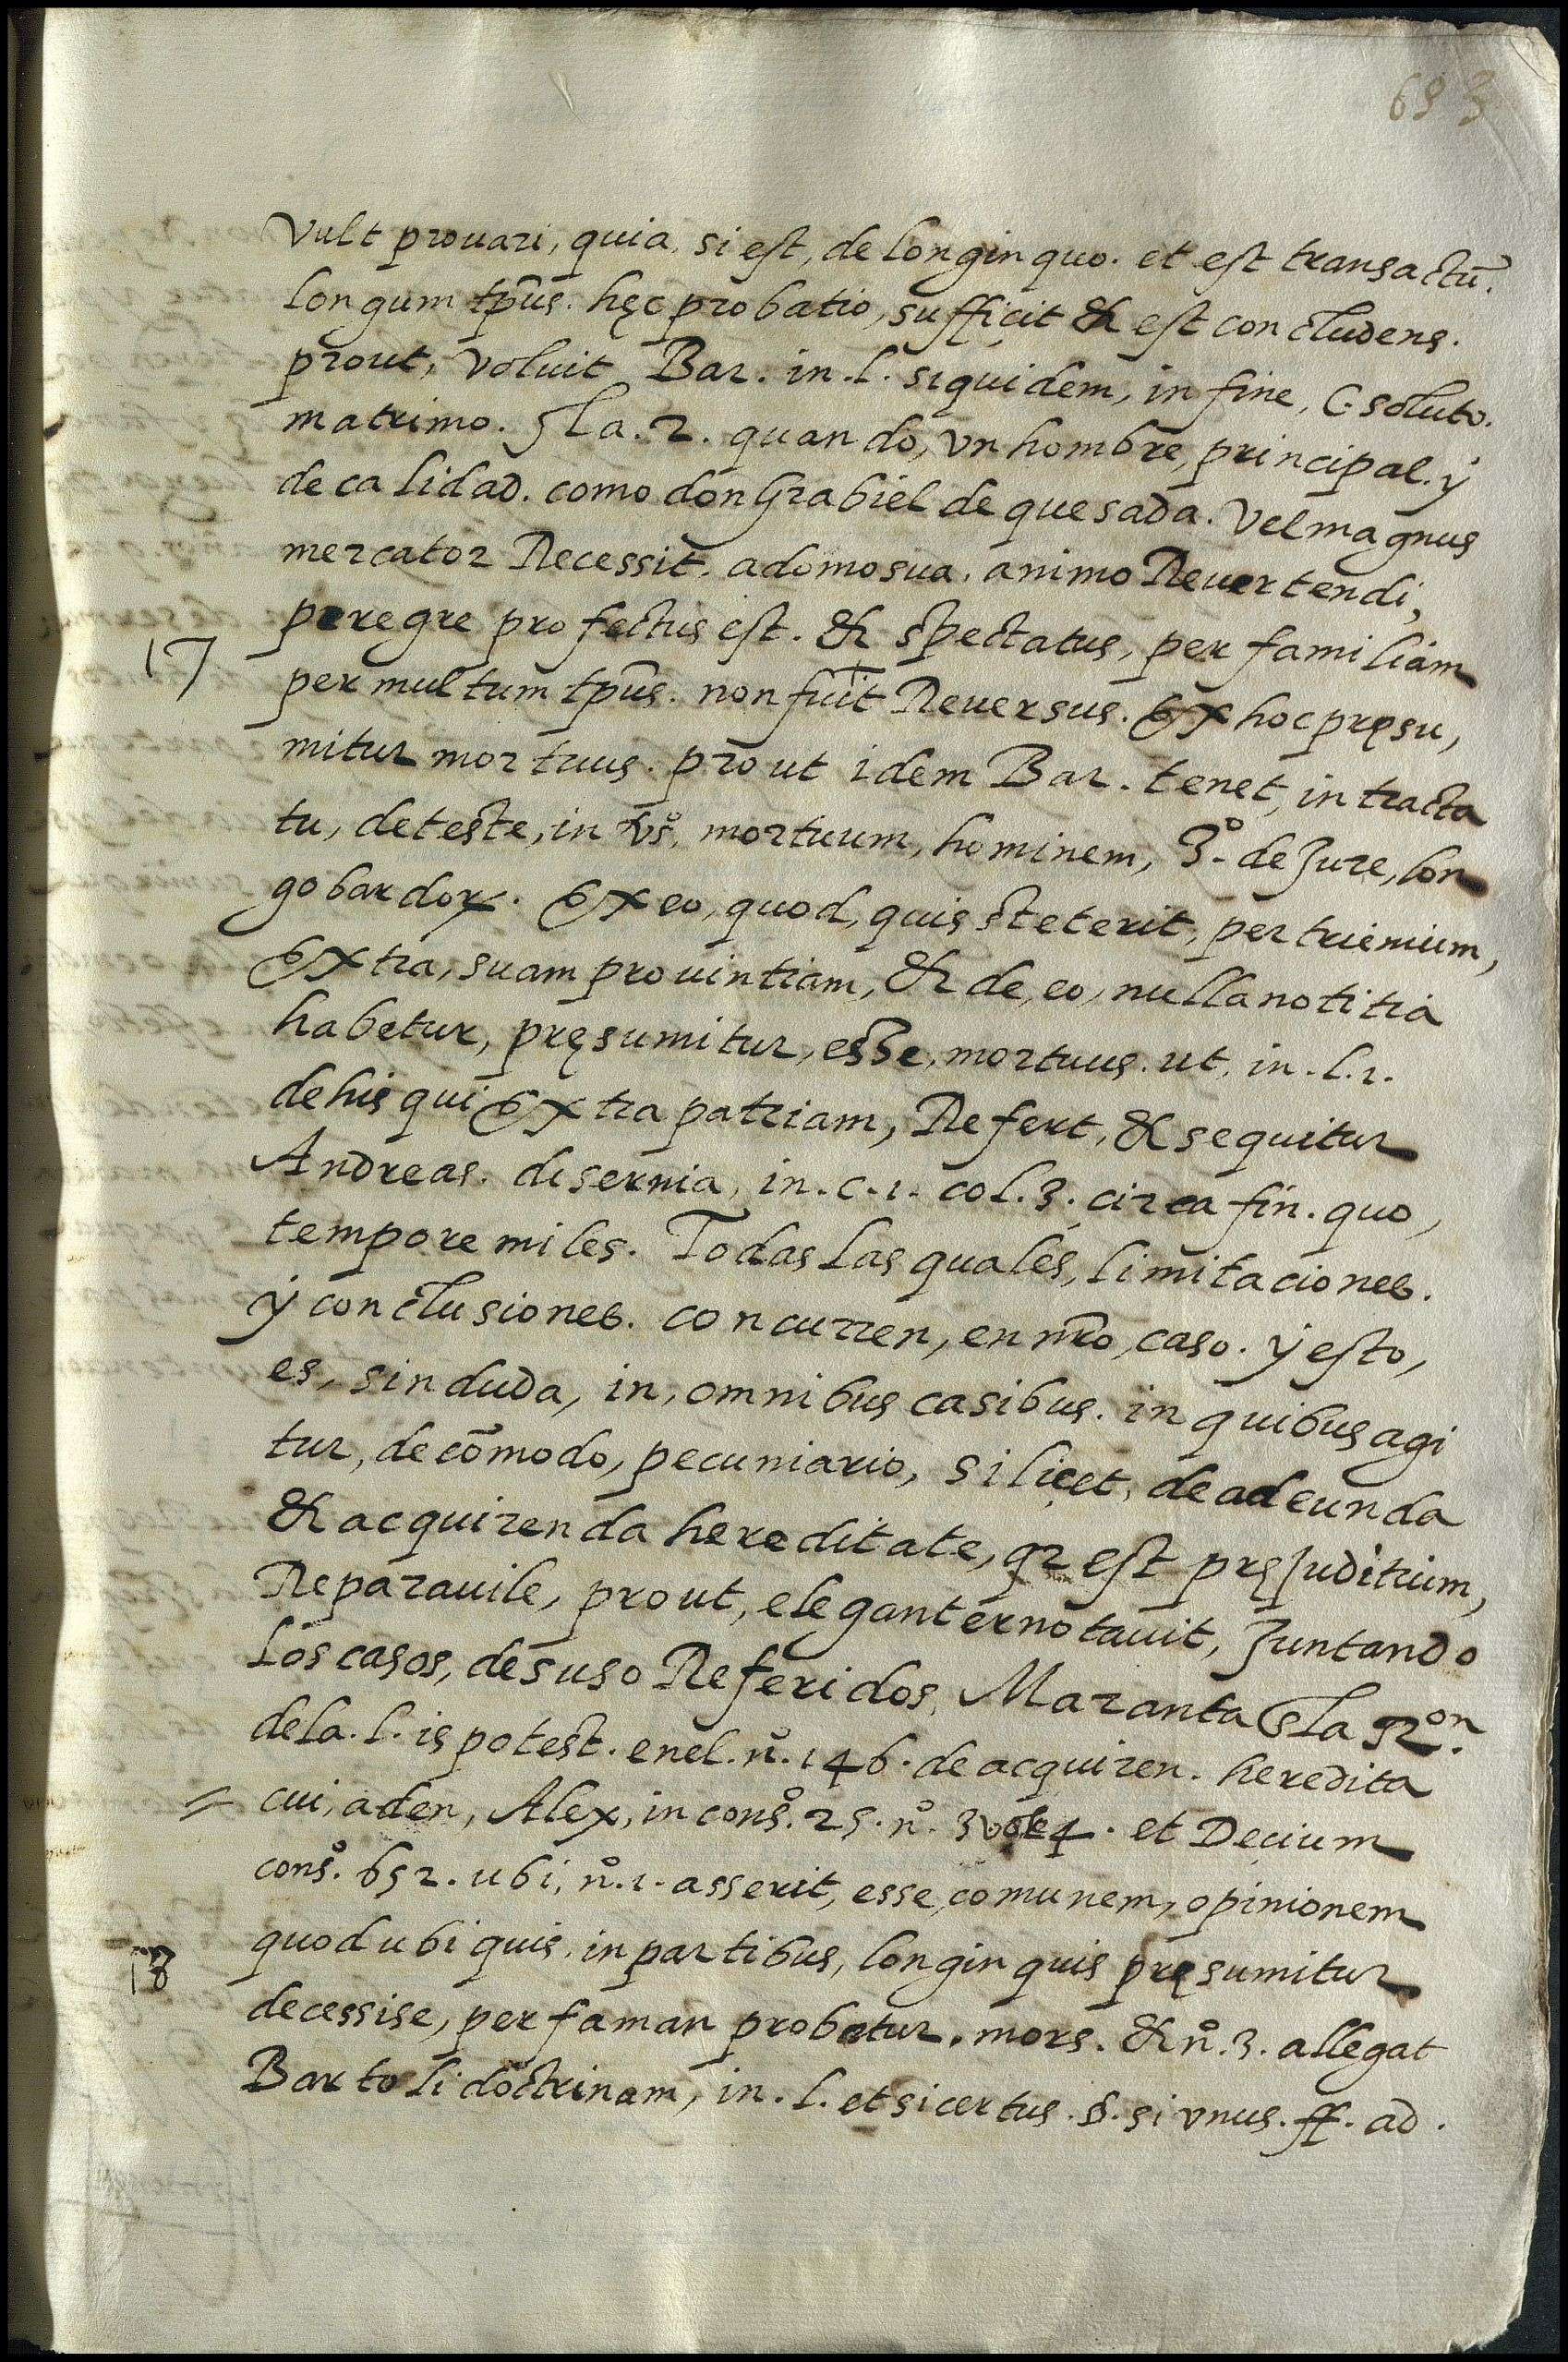 693
Vult prouari, quia, si est, de longinquo. et est transactũ.
longum tpũs. hęc probatio, sufficit & est concludens.
prout, voluit Bar. in. l. siquidem, in fine, C. soluto.
matrimo. La. 2. quando, vn hombre, principal. ÿ
de calidad. como don Grabiel de quesada. Vel magnus
mercator Recessit. a domo sua. animo Reuertendi,
peregre profectus est. & spectatus, per familiam
17
per multum tpũs. non fuit Reuersus. Ex hoc pręsu,
mitur mortuus. prout idem Bar. tenet, in tracta
tu, de teste, in vsº, mortuum, hominem, 3º de Jure, lon
gobardoꝝ. Ex eo, quod, quis steterit, per trienium,
Extra, suam prouintiam, & de, eo, nulla notitia
habetur, pręsumitur, esse, mortuus. ut. in. l. 1.
de his qui Extra patriam, Refert, & sequitur
Andreas. disernia, in. c. 1. col. 3. circa fin. quo,
tempore miles. Todas las quales, limitaciones.
ÿ conclusiones. concurren, en nr̃o, caso. ÿ esto,
es, sin duda, in, omnibus casibus. in quibus agi
tur, de cõmodo, pecuniario, silicet, de adeunda
& acquirenda hereditate, qr est pręJuditium,
Reparauile, prout, eleganter notauit, Juntando
los casos, de suso Referidos, Maranta La Rᵒⁿ.
de la. l. is potest. en el. nº. 146. de acquiren. heredita
= cui, aden, Alex, in consº. 25. nº. 3 4. et Decium
consº. 652. ubi, nº. 1. asserit, esse, comunem, opinionem
18
quod ubi quis, in partibus, longinquis pręsumitur
decessise, per faman probatur. mors. & nº. 3. allegat
Bartoli doctrinam, in. l. et si certus. §. si vnus. ff. ad.